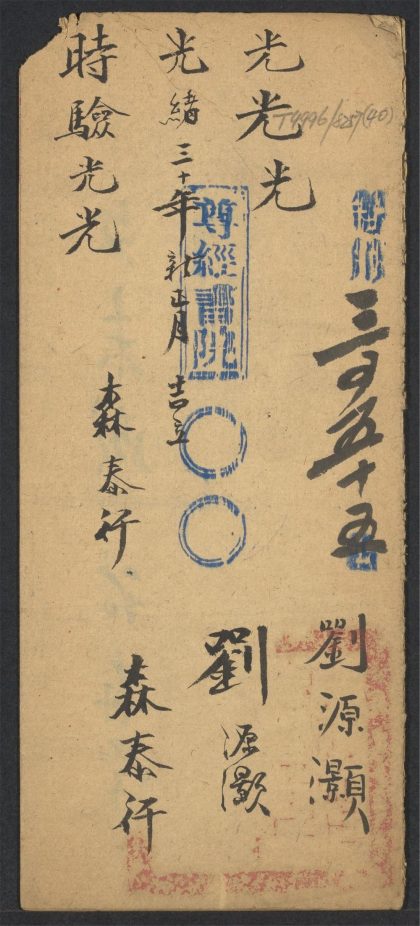 三百五十五
光光光
T4996/8257(40)
尊經書院
光緒三十年新正月吉立
時驗光光
森泰行
劉源灝
劉源灝
森泰行